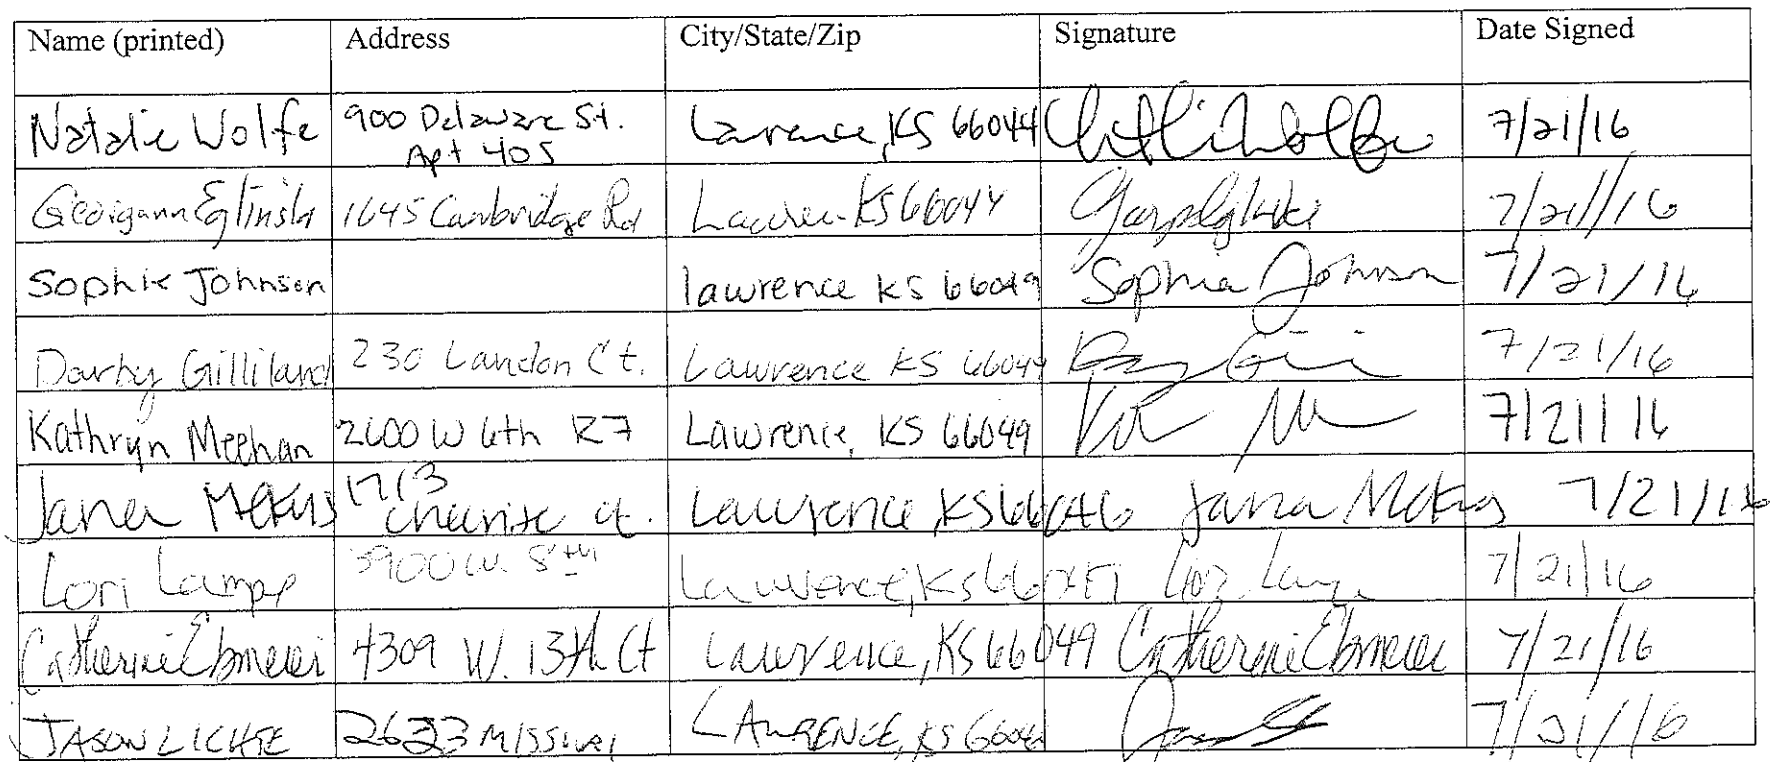 Name (printed) Address City/State/Zip Signature Date Signed
Natalie Wolfe 900 Delaware St. Apt 405 Lawrence, KS 66044 7/21/16
Georgann Eglinski 1645 Cambridge Rd Lawrence KS 66044 7/21/16
Sophie Johnson lawrence KS 66049 Sophia Johnson 7/21/16
Darby Gilliland 230 Landon Ct. Lawrence KS 66049 7/21/16
Kathryn Meehan 2600 W 6th R7 Lawrence, KS 66049 7/21/16
Jana 1713 ct. Lawrence, KS 66046 Jana 7/21/16
Lori 3900 W. 8th Lawrence, KS 7/21/16
Catherine Ebmeier 4309 W. 13th Ct Lawrence, KS 66049 Catherine Ebmeier 7/21/16
JASON LICHTE 2633 MISSOURI LAWRENCE, KS 66046 7/21/16